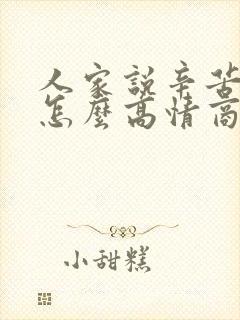 人家說辛苦
怎麼高情商
小甜糕